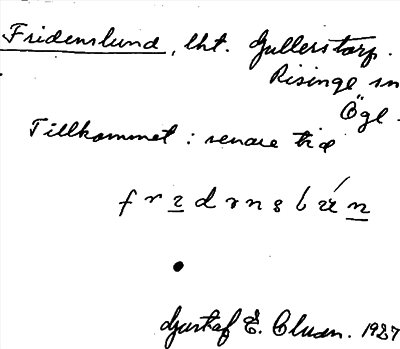 Fridenslund, lht. Gullerstorp.
Risinge sn
Ögl.
Tillkommet: senare tid
Gustaf E. Cluan. 1927